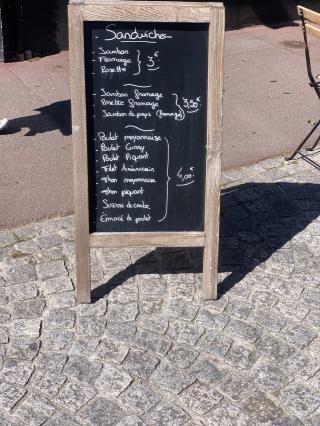 Sandwiches
- Jambon
- Fromage
- Rosette
3€
- Jambon fromage
- Rosette fromage
- Jambon de pays (fromage)
3,50€
- Poulet mayonnaise
- Poulet Curry
- Poulet Piquant
- Filet Américain
- Thon mayonnaise
- Thon piquant
- Surimi de crabe
- Émincé de poulet
4,00€